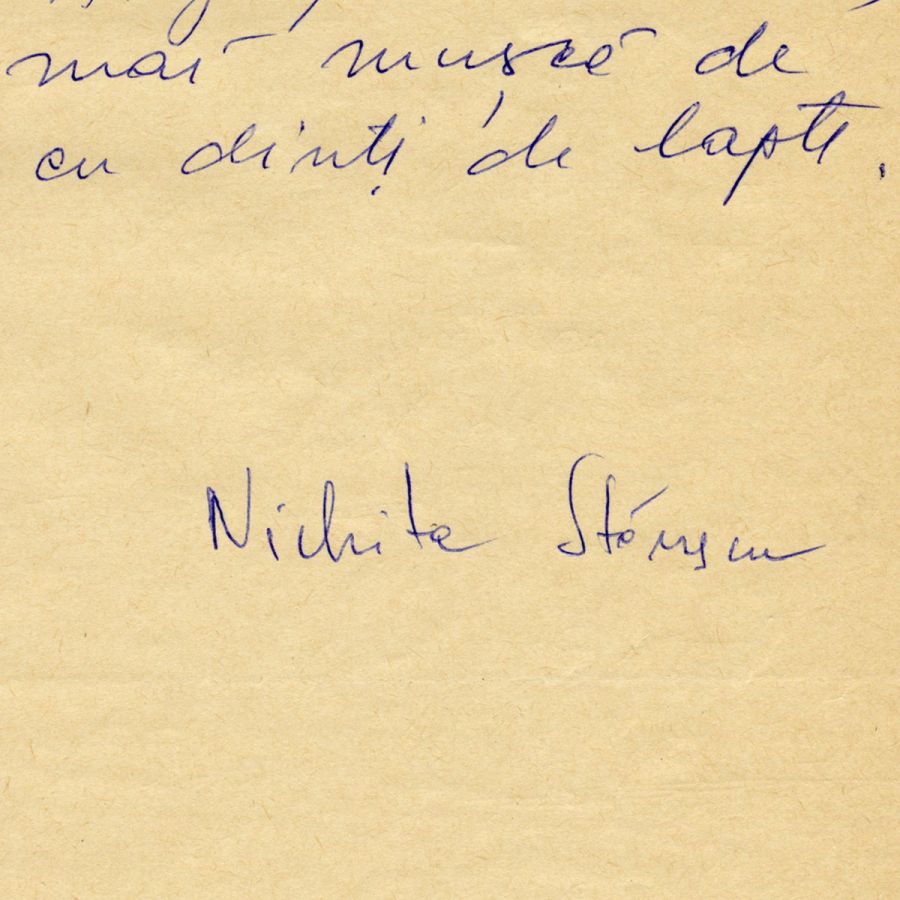 mai mușcă de
cu dinți de lapte.
Nichita Stănescu